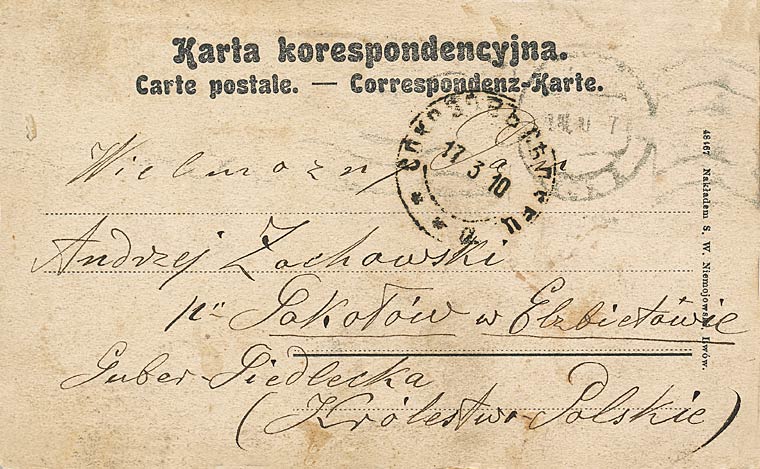 Karta korespondencyjna.
Carte postale. — Correspondenz-Karte.
Wielmożny Pan
17 3 10
Andrzej Zachowski
Sokołów w Elżbietówie
Guber. Siedlecka
(Królestwo Polskie)
48467 Nakładem S. W. Niemojowski, Lwów.